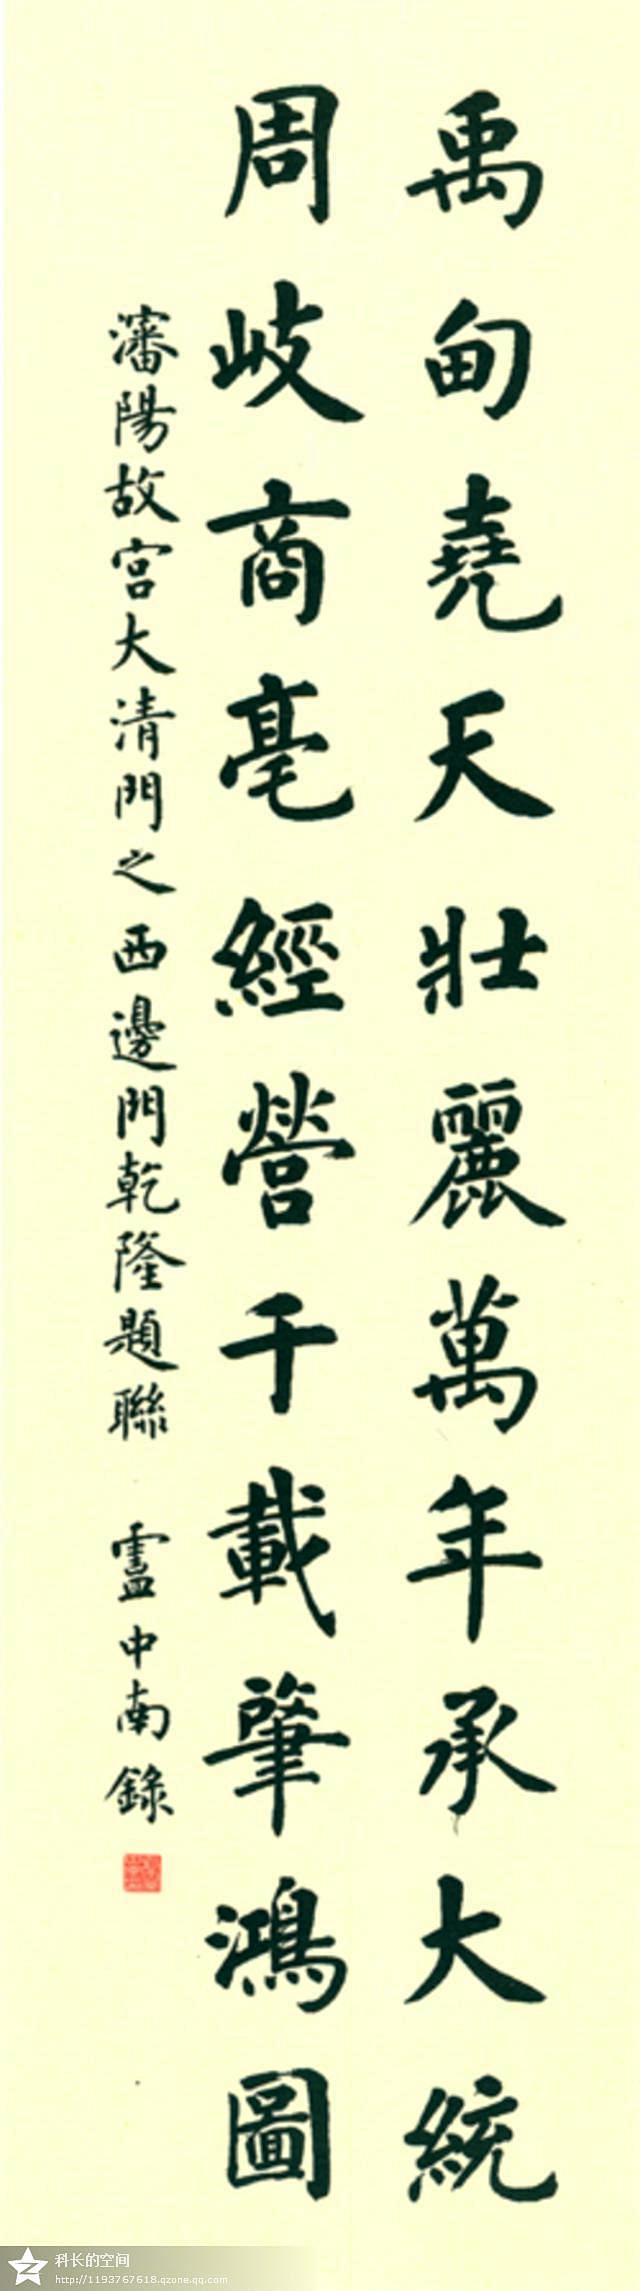 禹甸堯天壯麗萬年承大統
周岐商亳經營千載肇鴻圖
瀋陽故宮大清門之西邊門乾隆題聯 盧中南錄
科长的空间
http://1193767618.qzone.qq.com